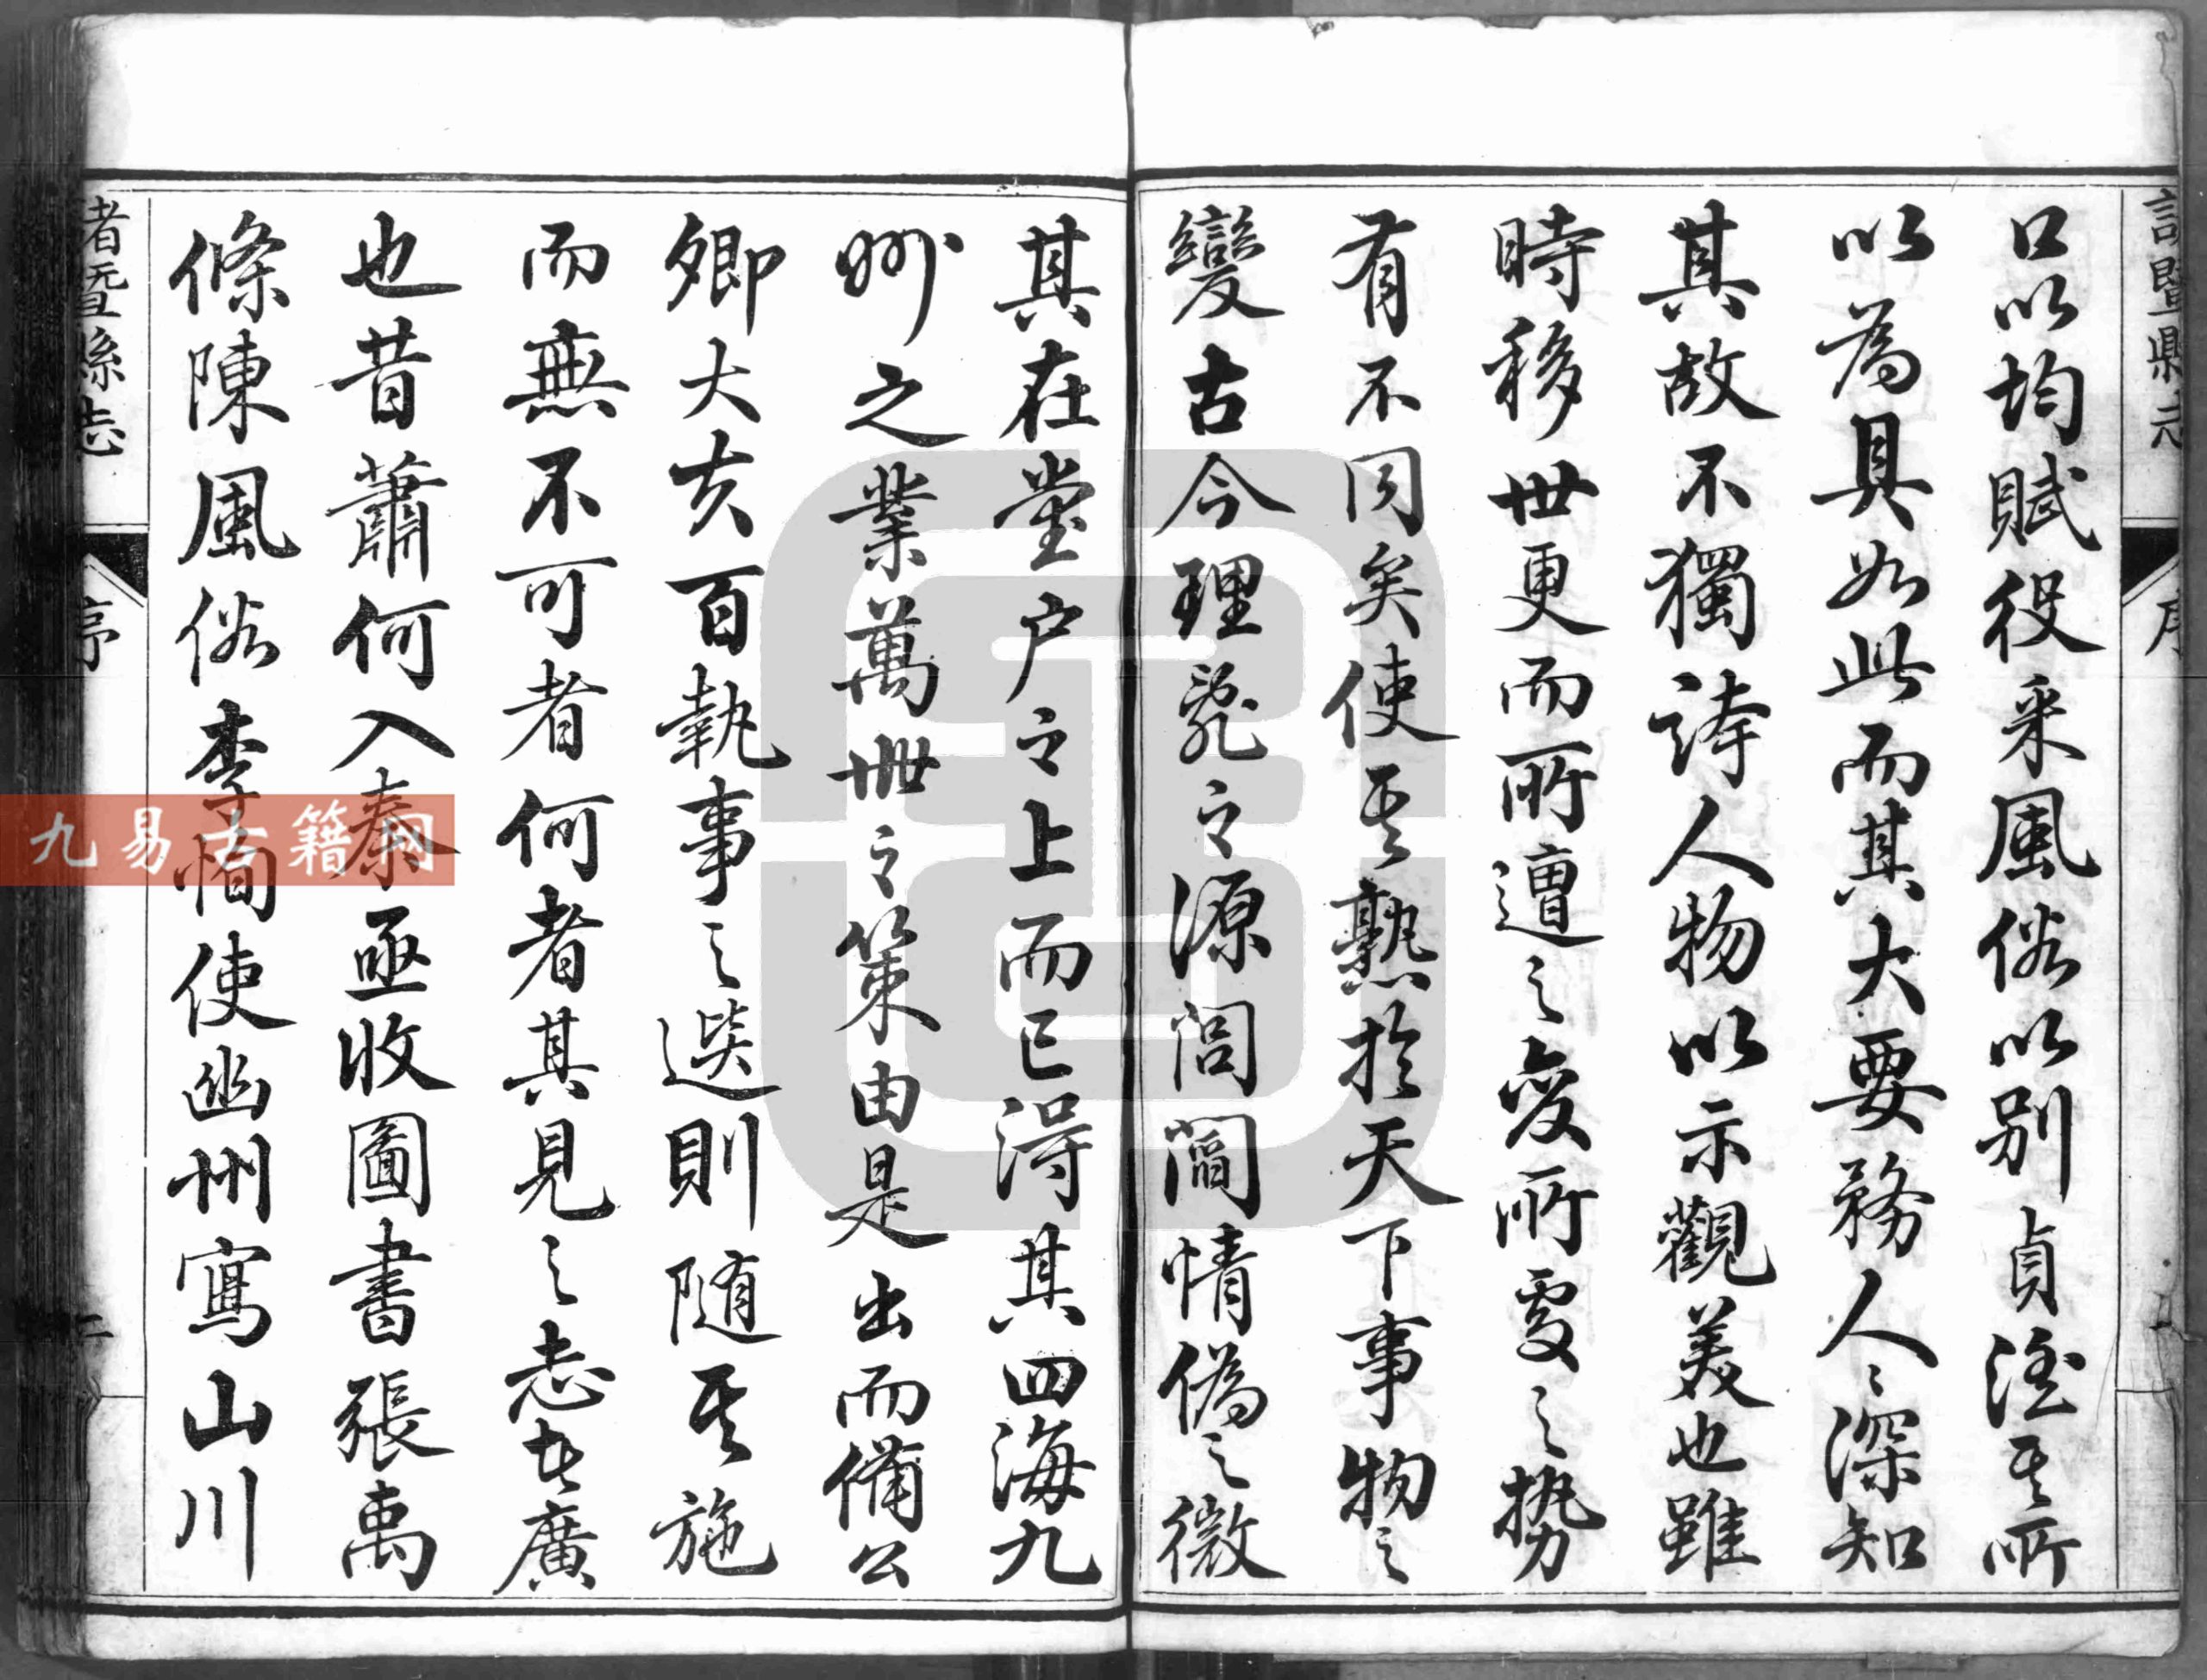 口以均賦役采風俗以別貞淫其所
以為具如此而其大要務人〻深知
其故不獨誇人物以示觀美也雖
時移世更而所遭之變所處之勢
有不同矣使其熟於天下事物之
變古今理亂之源閭閻情偽之微
其在堂户之上而已得其四海九
州之業萬世之策由是出而備公
卿大夫百執事之選則随其施
而無不可者何者其見之志者廣
也昔蕭何入秦亟收圖書張禹
條陳風俗李恂使幽州寫山川
諸暨縣志
序
二
九易古籍网